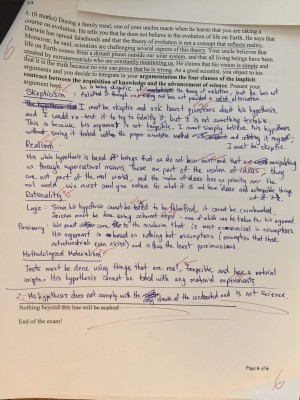 4. (6 marks) During a family meal, one of your uncles reacts when he learns that you are taking a
course on evolution. He tells you that he does not believe in the evolution of life on Earth. He says that
Darwin has spread falsehoods and that the theory of evolution is not a concept that reflects reality.
Moreover, he said, scientists are challenging several aspects of this theory. Your uncle believes that
life on Earth comes from a distant planet outside our solar system, and that all living beings have been
created by extraterrestrials who are constantly monitoring us. He claims that his vision is simple and
that it is the truth because no one can prove that he is wrong. As a good scientist, you object to his
arguments and you decide to integrate in your argumentation the four clauses of the implicit
contract between the acquisition of knowledge and the advancement of science. Present your
argument here.
he is being skeptic of the theory of evolution, but he has not
Skepticism
falsified it though and has not provided a valid alternative.
I must be skeptic and ask honest questions about his hypothesis,
and I would test it to try to falsify it, but it is not something testable.
This is because, his argument is not tangible. I must simply believe his hypothesis
without seeing it tested using the proper scientific method and testing it myself;
I must be skeptic.
Realism:
His whole hypothesis is based of beings that we do not know exist and that are manipulating
us through supernatural means, these are part of the realm of ideas, they
are not part of the real world, and the realm of ideas has no priority over the
real world. We must send you nature for what it is and how ideas and categorize things
Rationality
Logic: Since his hypothesis cannot be tested to be falsified, it cannot be corroborated.
Science must be done using coherent steps - none of which can be taken for his argument.
Parsimony: We must come to the conclusion that is most economical in assumptions.
His argument is based on nothing but assumptions (assumption that these
extraterrestrials even exist) and is thus the least parsimonious
Methodological Materialism:
Tests must be done using things that are real, tangible, and has a material
origin. His hypothesis cannot be tested with any material experiments
∴ His hypothesis does not comply with the any clause of the contract and is not science.
Nothing beyond this line will be marked
End of the exam!
Page 6 of 6